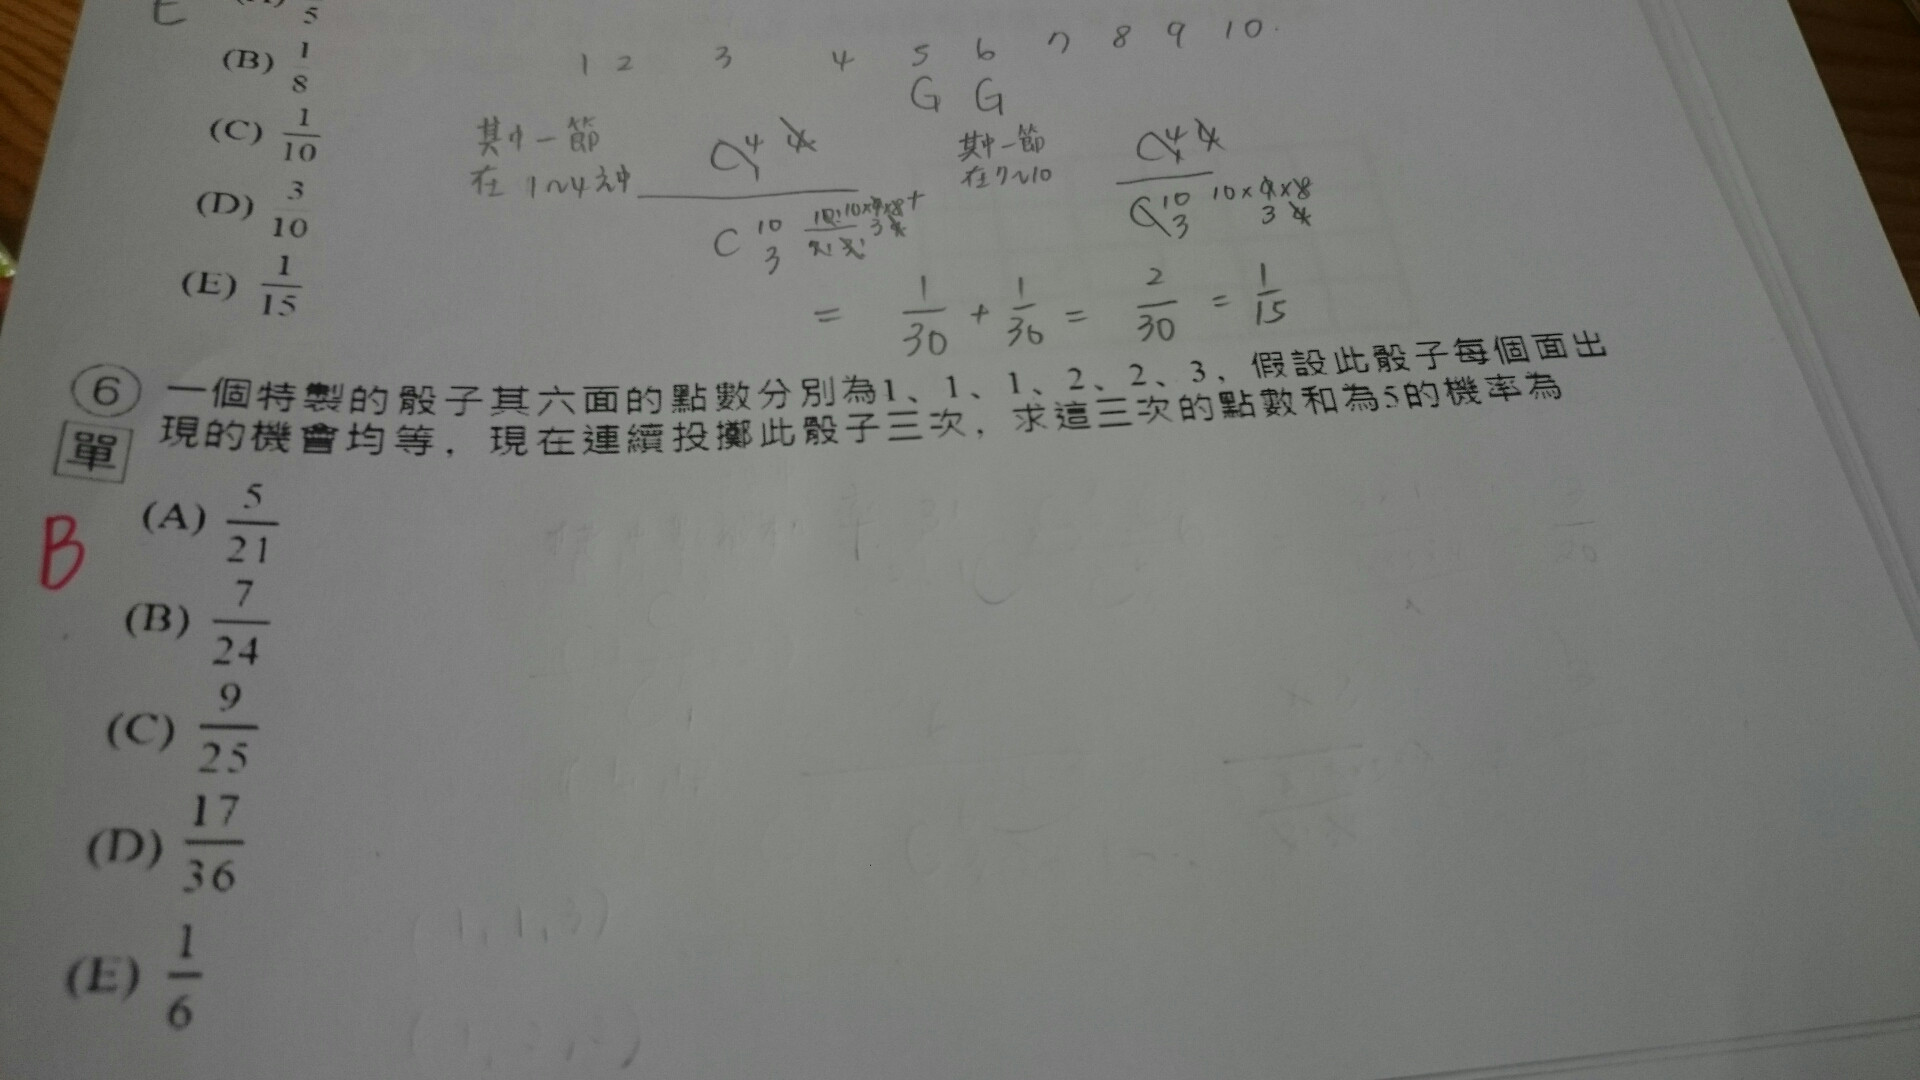 E
5
(B) 1/8
1 2 3 4 5 6 7 8 9 10.
G G
(C) 1/10
其中一節
在1~4神
C 4 1 4
C 10 3 10! 10×9×8 +
其中一節
在7~10
C 4 1 4
C 10 3 10×9×8
3
(D) 3/10
(E) 1/15
= 1/30 + 1/30 = 2/30 = 1/15
6 一個特製的骰子其六面的點數分別為1、1、1、2、2、3,假設此骰子每個面出
單 現的機會均等,現在連續投擲此骰子三次,求這三次的點數和為5的機率為
B
(A) 5/21
(B) 7/24
(C) 9/25
(D) 17/36
(E) 1/6
(1,1,3)